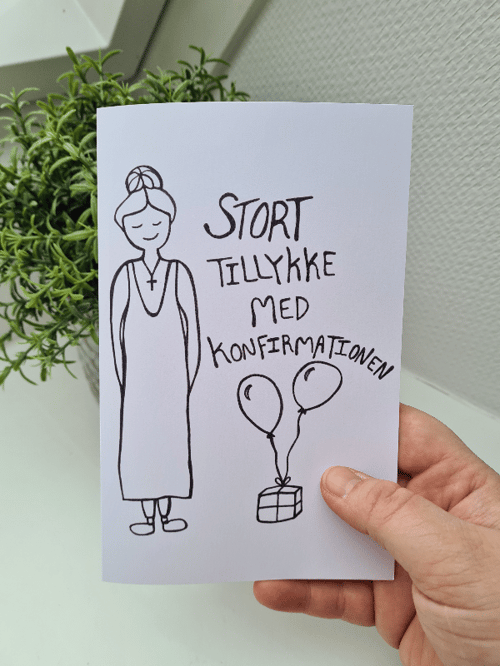 STORT
TILLYKKE
MED
KONFIRMATIONEN